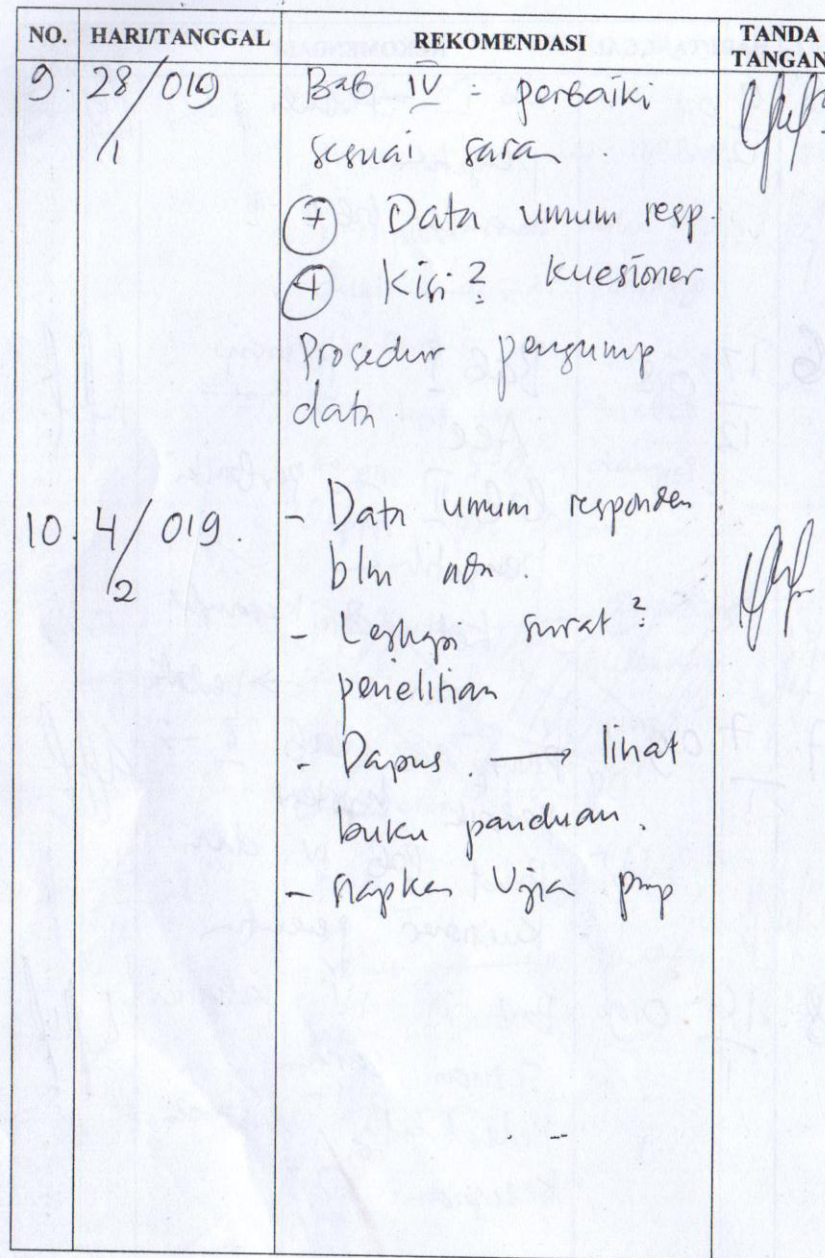 NO. HARI/TANGGAL REKOMENDASI TANDA TANGAN
9. 28/1 019 Bab IV = perbaiki
sesuai saran.
+ Data umum resp.
+ Kisi2 kuesioner
Prosedur pengump
data
10. 4/2 019. - Data umum responden
blm ada.
- Lengkapi surat2
penelitian
- Dapus. → lihat
buku panduan.
- siapkan Ujian prop